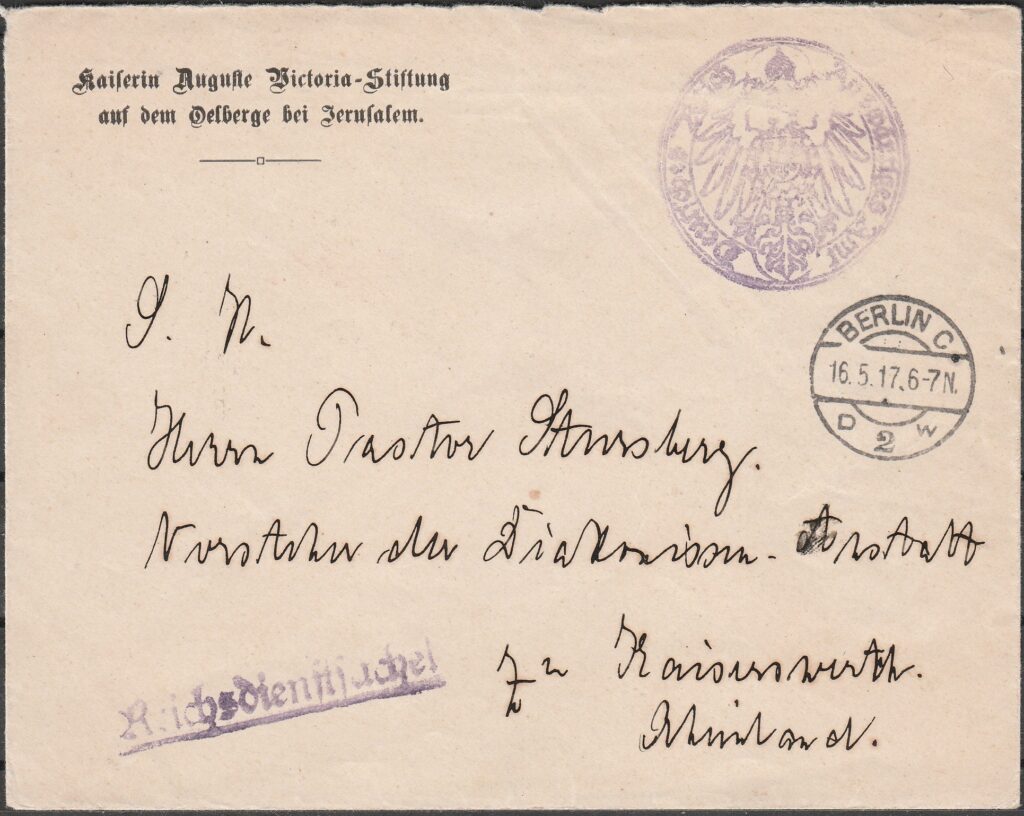 Kaiserin Auguste Victoria-Stiftung
auf dem Oelberge bei Jerusalem.
Deutsches Reich Auswärtiges Amt
BERLIN C.
16.5.17.6-7N.
D 2 w
S. H.
Herrn Pastor Stursberg.
Vorsteher der Diakonissen-Anstalt
zu Kaiserswerth.
Rheinland.
Reichsdienstsache!